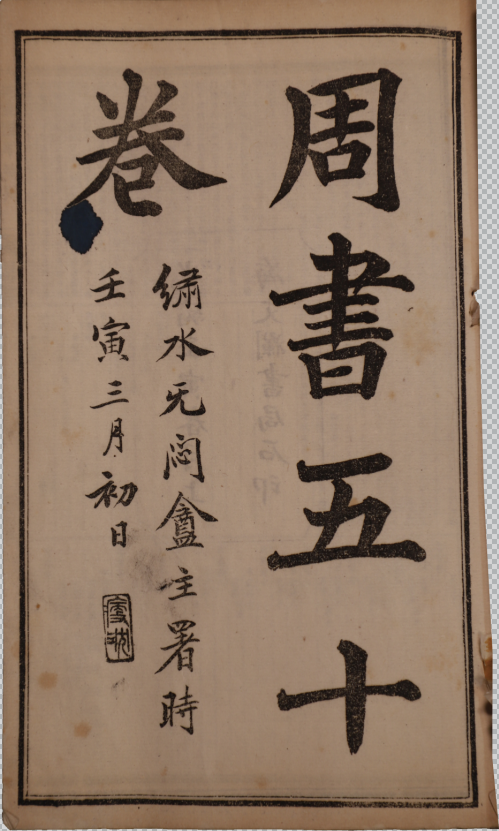 周書五十
卷
繡水旡悶盦主署時
壬寅三月初日